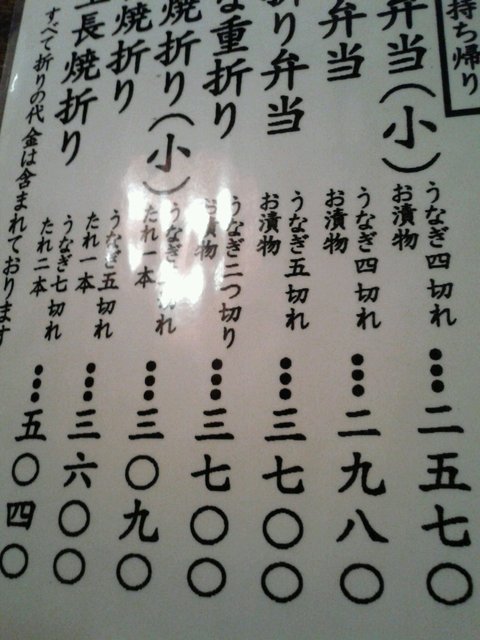 持ち帰り
弁当(小)
うなぎ四切れ
お漬物
…二五七〇
弁当
うなぎ四切れ
お漬物
…二九八〇
折り弁当
うなぎ五切れ
お漬物
…三七〇〇
な重折り
うなぎ二つ切り
お漬物
…三七〇〇
焼折り(小)
うなぎ
切れ
たれ一本
…三〇九〇
焼折り
うなぎ五切れ
たれ一本
…三六〇〇
長焼折り
うなぎ七切れ
たれ二本
…五〇四〇
すべて折りの代金は含まれております